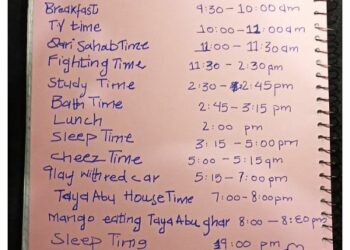 Breakfast 9:30-10:00am
TV time 10:00-11:00am
Qari Sahab Time 11:00-11:30am
Fighting Time 11:30-2:30pm
Study Time 2:30-2:45pm
Bath Time 2:45-3:15 pm
Lunch 2:00 pm
Sleep Time 3:15-5:00pm
cheez Time 5:00-5:15am
Play with red car 5:15-7:00pm
Taya Abu House Time 7:00-8:00pm
Mango eating Taya Abu ghar 8:00-8:30pm
Sleep Time 9:00 pm